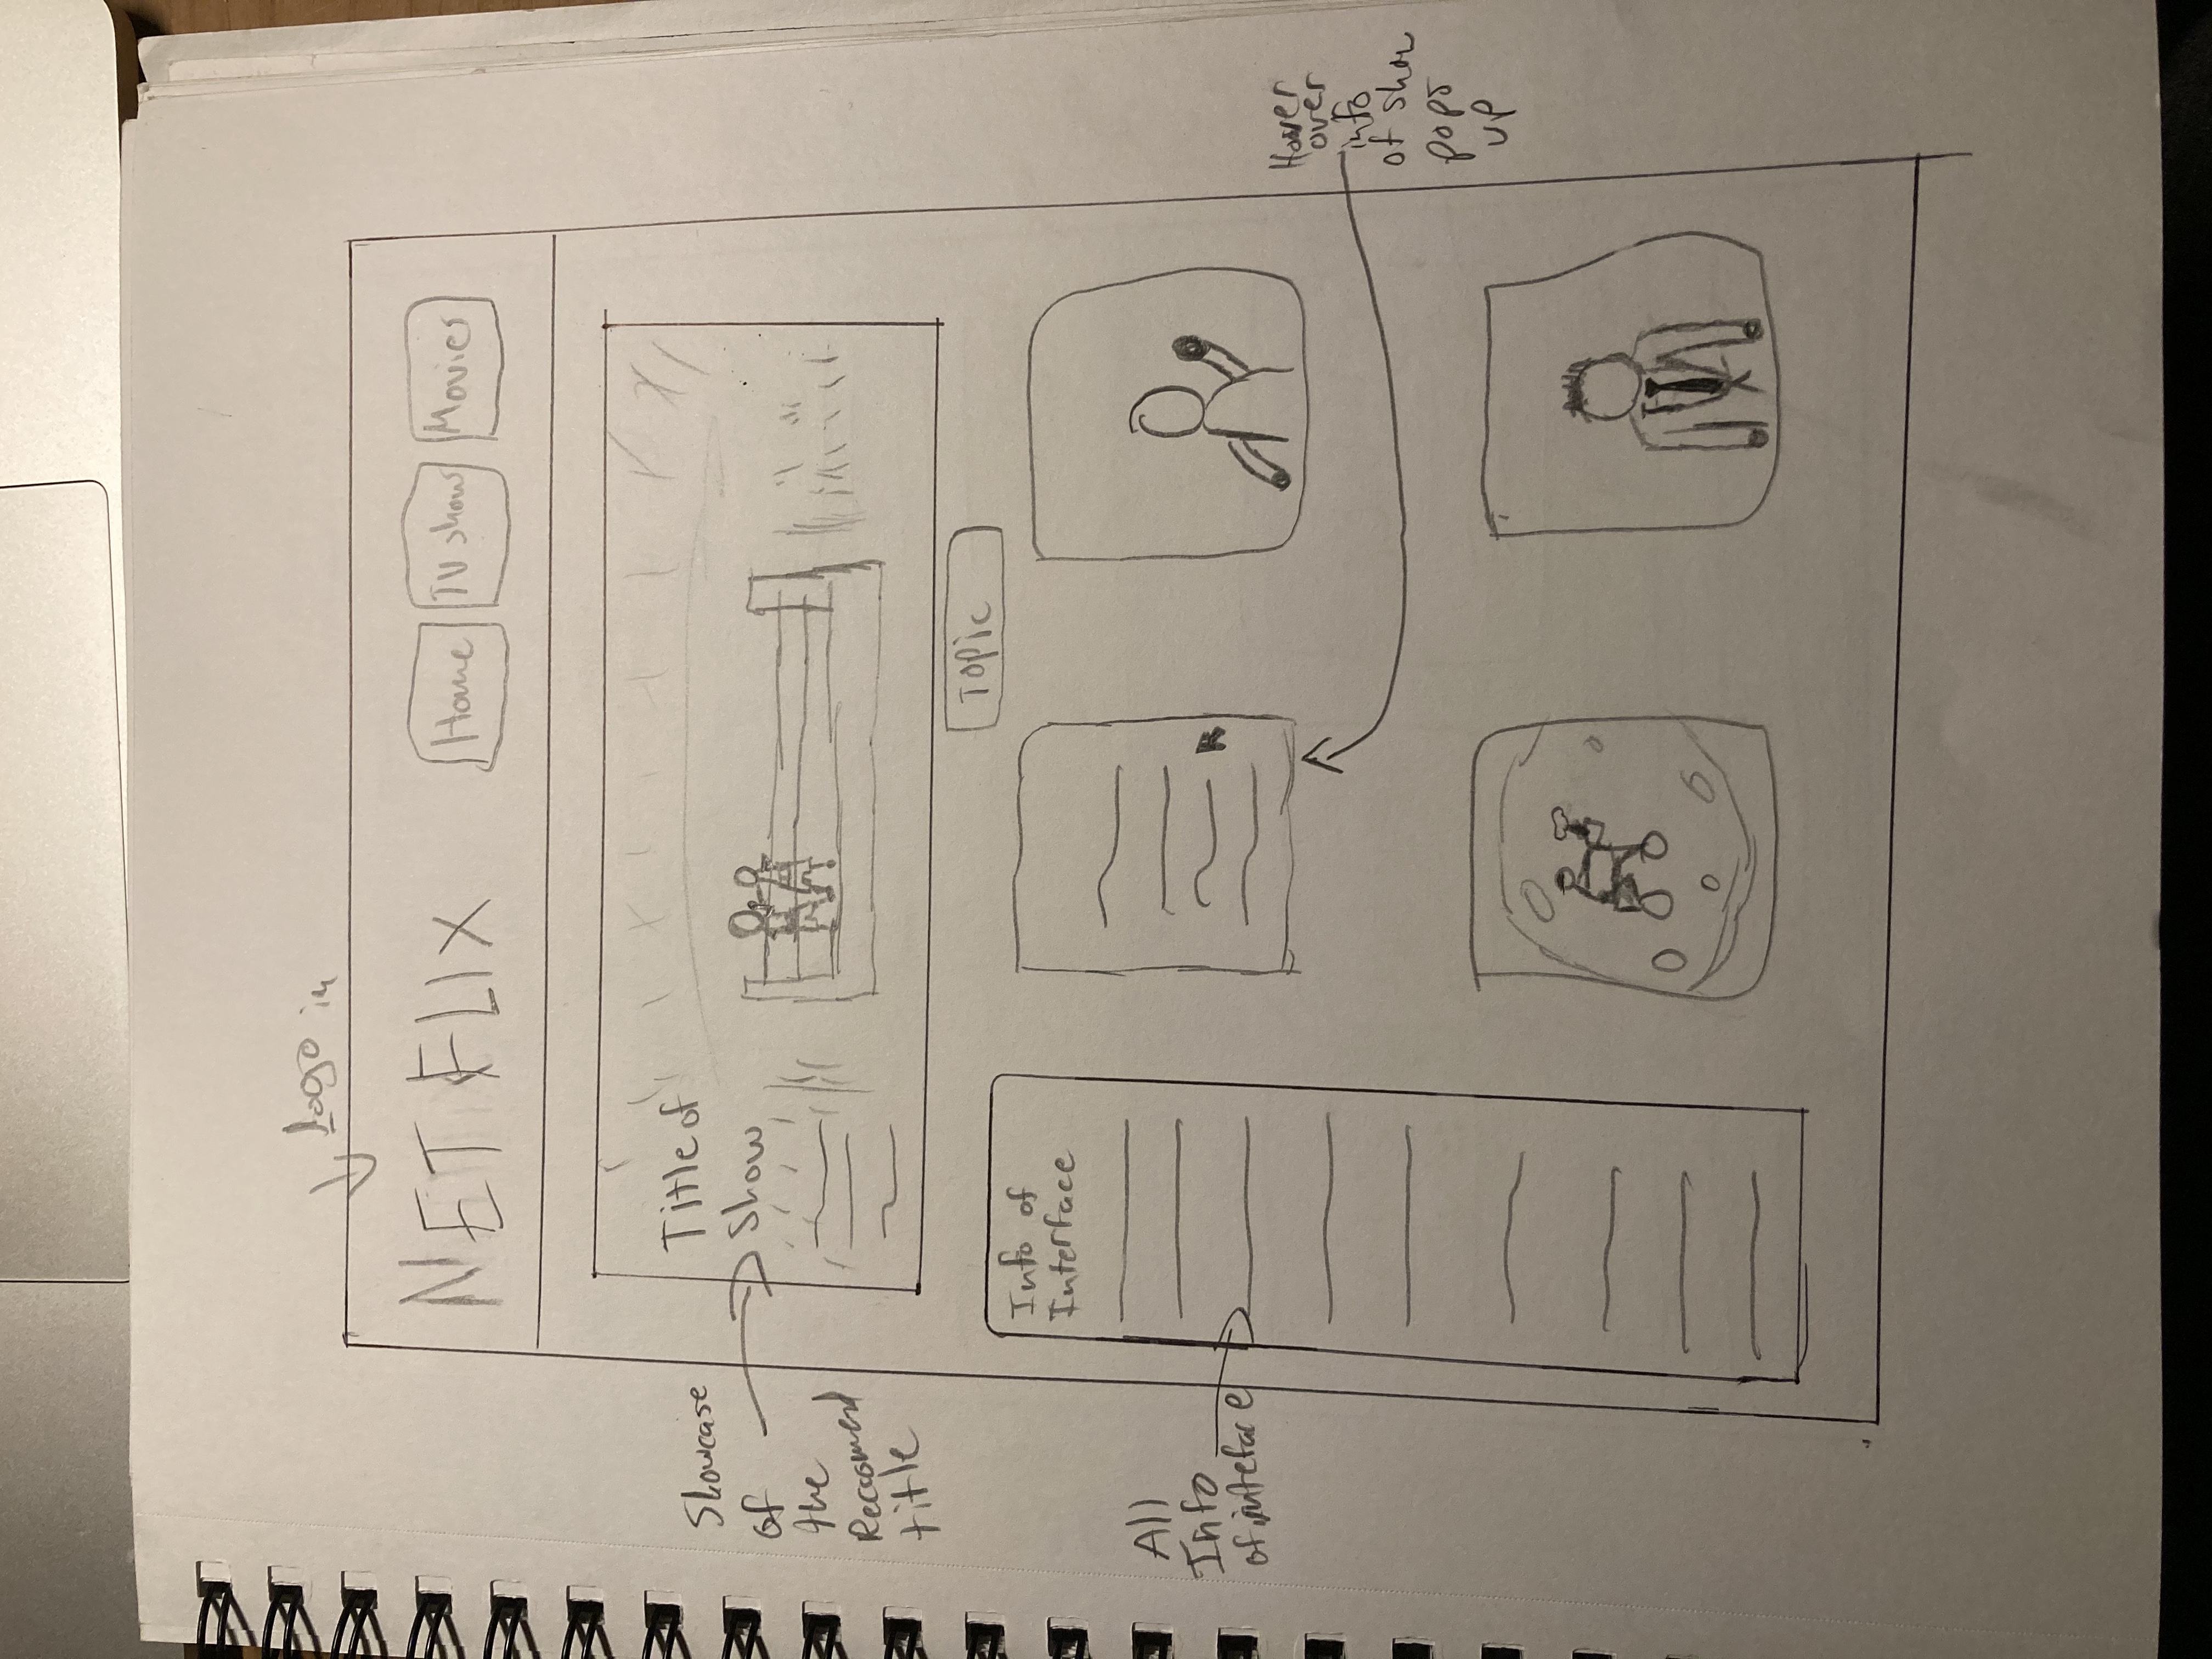 Logo in
NETFLIX
Home
TV show
Movies
Title of
Show
Showcase
of
the
Reccomend
title
Topic
Info of
Interface
All
Info
of inteface
Hover
over
info
of show
pops
up